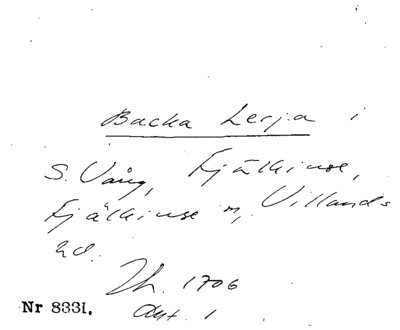 Backa Lerja i
S. Vång, Fjälkinge,
Fjälkinge sn, Villands
hd.
Lh. 1706
Akt. 1
Nr 8331.